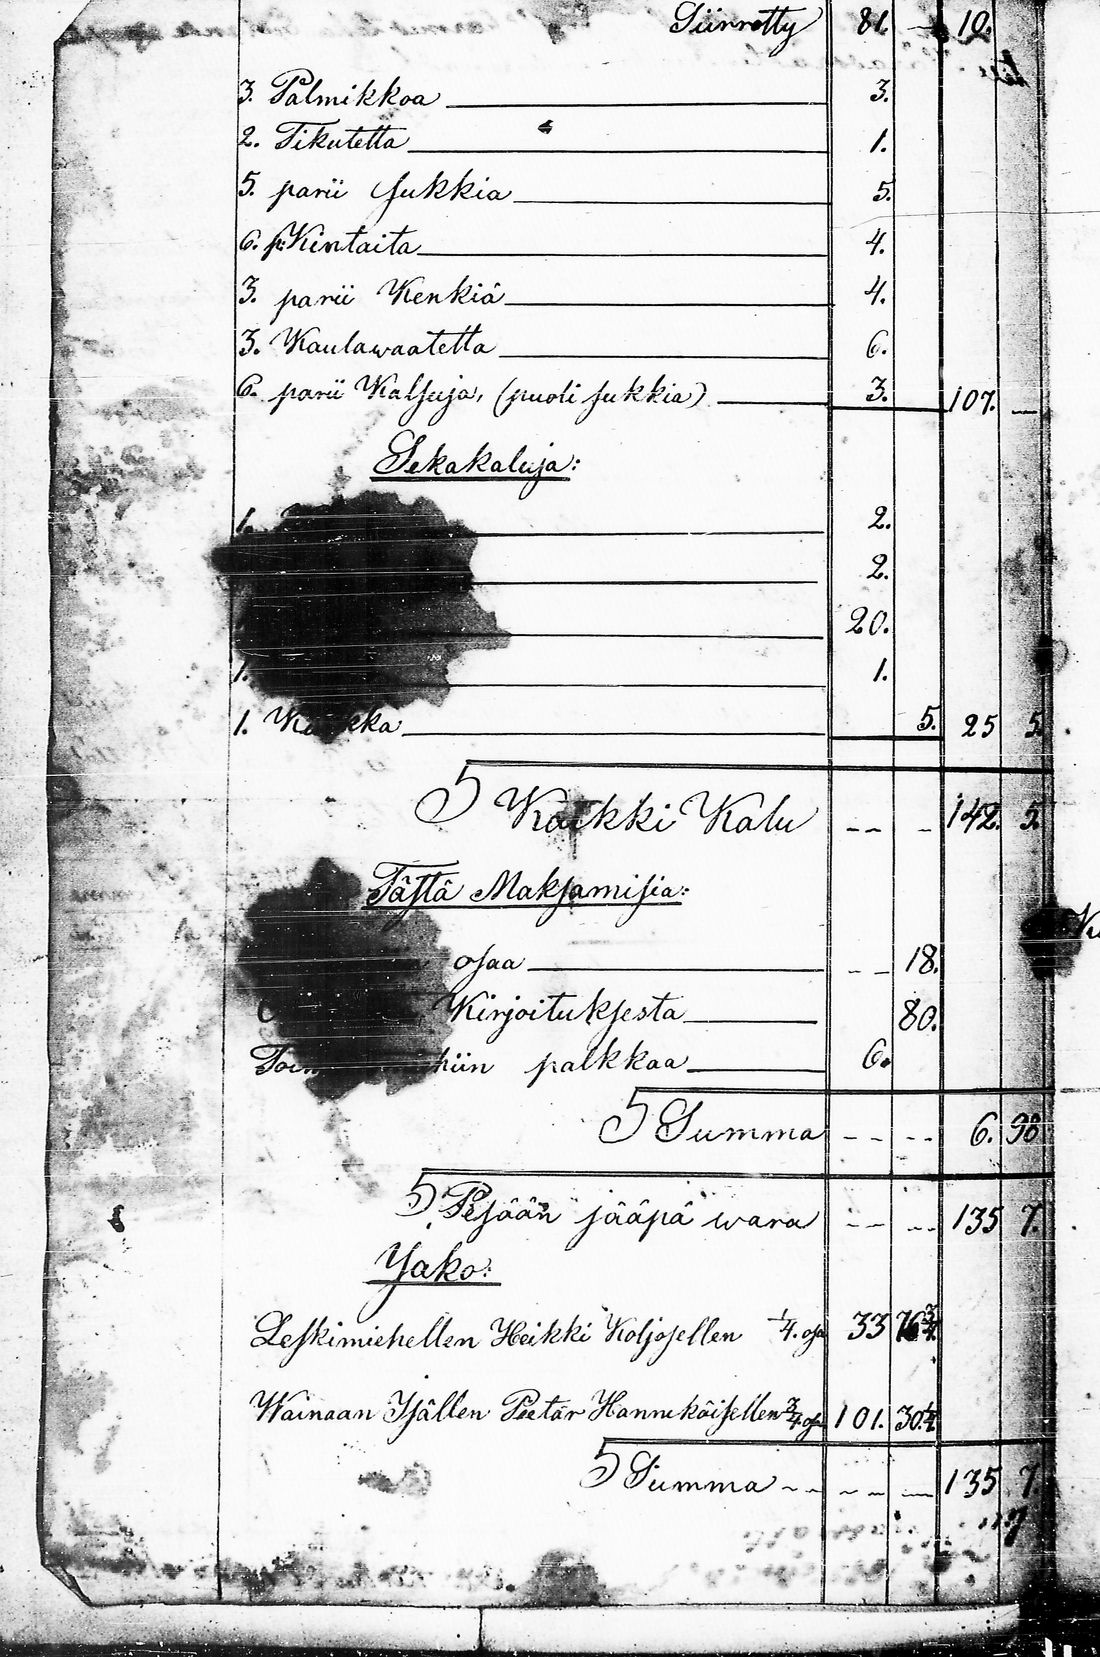 Siirretty 81. — 10.
3. Palmikkoa 3.
2. Tikutetta 1.
5. parii sukkia 5.
6. p: Kintaita 4.
3. parii Kenkiä 4.
3. Kaulawaatetta 6.
6. parii Kalsuja, (puoli sukkia) 3. 107. —
Sekakaluja:
1. 2.
2.
20.
1. 1.
1. 5. 25 5.
S Kaikki Kalu -- - 142. 5.
Tästä Maksamisia:
osaa -- 18.
Kirjoituksesta 80.
palkkaa 6.
S Summa -- -- 6. 98
S Pesään jääpä wara -- -- 135 7.
Jako:
Leskimiehellen Heikki Koljosellen 1/4. osa 33 76 3/4.
Wainaan Isällen Peetar Hannikäisellen 3/4. osa 101. 30 1/4.
S Summa -- -- — 135 7.